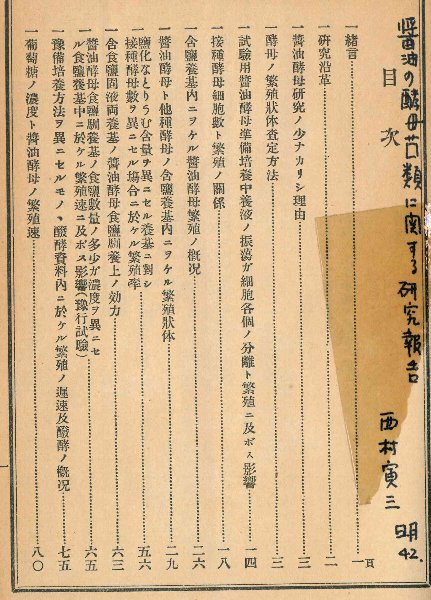 醤油の酵母菌類に関する研究報告
西村寅三 明42.
目次
頁
一緒言…一
一研究沿革…二
一醬油酵母研究ノ少ナカリシ理由…三
一酵母ノ繁殖狀体査定方法…三
一試驗用醬油酵母準備培養中養液ノ振蕩ガ細胞各個ノ分離ト繁殖ニ及ボス影響…一四
一接種酵母細胞數ト繁殖ノ關係…一八
一含鹽養基內ニヲケル醬油酵母繁殖ノ概況…二六
一醬油酵母ト他種酵母ノ含鹽養基內ニヲケル繁殖狀体…二九
一鹽化なとりうむ含量ヲ異ニセル養基ニ對シ
接種酵母數ヲ異ニセル場合ニ於ケル繁殖率…五六
一含食鹽固液両養基ノ醬油酵母食鹽馴養上ノ効力…六三
一醬油酵母食鹽馴養基ノ食鹽數量ノ多少ガ濃度ヲ異ニセ
ル食鹽養基中ニ於ケル繁殖速ニ及ボス影響(豫行試驗)…六五
一豫備培養方法ヲ異ニセルモノヽ醱酵資料內ニ於ケル繁殖ノ遲速及醱酵ノ概况…七五
一葡萄糖ノ濃度ト醬油酵母ノ繁殖速…八〇